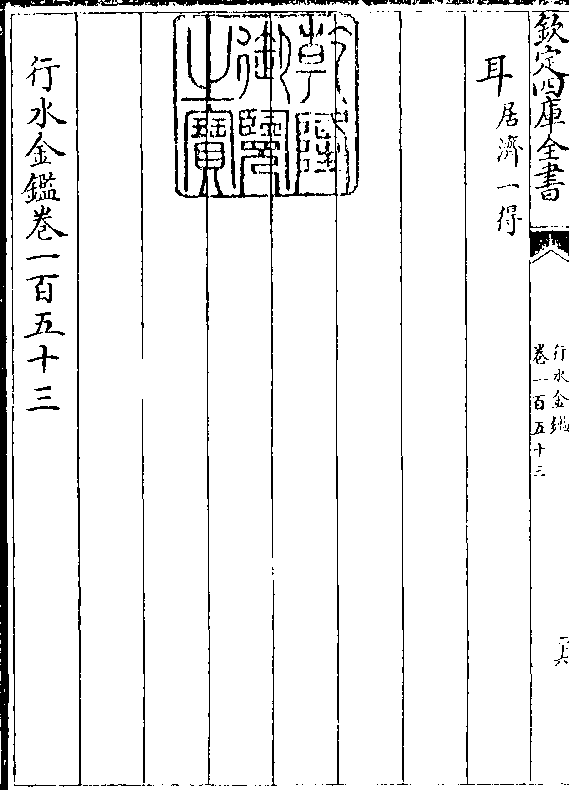 欽定四庫全書
行水金鑑
卷一百五十三
耳居濟一得
乾隆御覽之寶
行水金鑑卷一百五十三